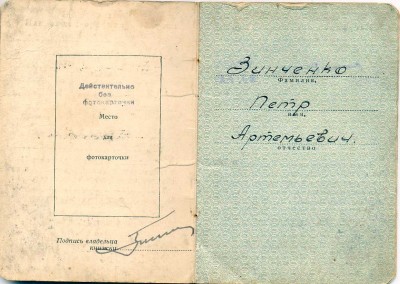 Действительно
без
фотокарточки
Место
для
фотокарточки
Подпись владельца
книжки
Зинченко
Фамилия,
Петр
имя,
Артемьевич.
отчество